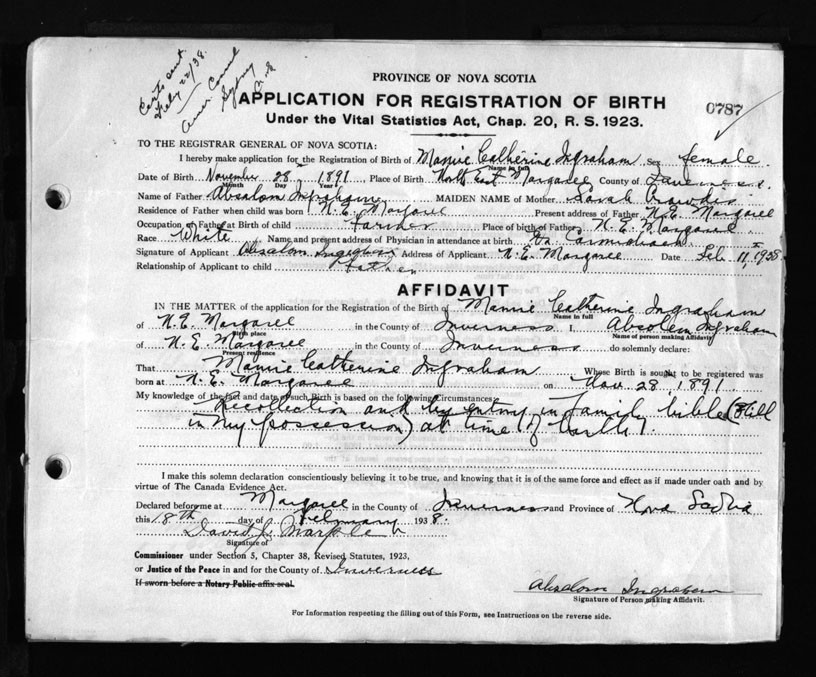 Certs sent
Feby 22/38.
Amer. Consul
Sydney
PROVINCE OF NOVA SCOTIA
APPLICATION FOR REGISTRATION OF BIRTH
0787
Under the Vital Statistics Act, Chap. 20, R. S. 1923.
TO THE REGISTRAR GENERAL OF NOVA SCOTIA:
I hereby make application for the Registration of Birth of Mamie Catherine Ingraham Sex female
Name in full
Date of Birth November 28 1891 Place of Birth North East Margaree County of Inverness
Month Day Year
Name of Father Absalom Ingraham MAIDEN NAME of Mother Sarah Crowdis
Residence of Father when child was born N. E. Margaree Present address of Father N. E. Margaree
Occupation of Father at Birth of child Farmer Place of birth of Father N. E. Margaree
Race White Name and present address of Physician in attendance at birth Carmichael
Signature of Applicant Absalom Ingraham Address of Applicant N. E. Margaree Date Feb. 11, 1938
Relationship of Applicant to child Father
AFFIDAVIT
IN THE MATTER of the application for the Registration of the Birth of Mamie Catherine Ingraham
Name in full
of N. E. Margaree in the County of Inverness I Absolem Ingraham
Birth place Name of person making Affidavit
of N. E. Margaree in the County of Inverness do solemnly declare:
Present residence
That Mamie Catherine Ingraham Whose Birth is sought to be registered was
born at N. E. Margaree on Nov. 28, 1891.
My knowledge of the fact and date of such Birth is based on the following Circumstances:
Recollection and by entry in family bible (still
in my possession) at time of birth.
I make this solemn declaration conscientiously believing it to be true, and knowing that it is of the same force and effect as if made under oath and by
virtue of The Canada Evidence Act.
Declared before me at Margaree in the County of Inverness and Province of Nova Scotia
this 18th day of February 1938.
David J.
Signature of
Commissioner under Section 5, Chapter 38, Revised Statutes, 1923,
or Justice of the Peace in and for the County of Inverness
If sworn before a Notary Public affix seal.
Absalom Ingraham
Signature of Person making Affidavit.
For Information respecting the filling out of this Form, see Instructions on the reverse side.